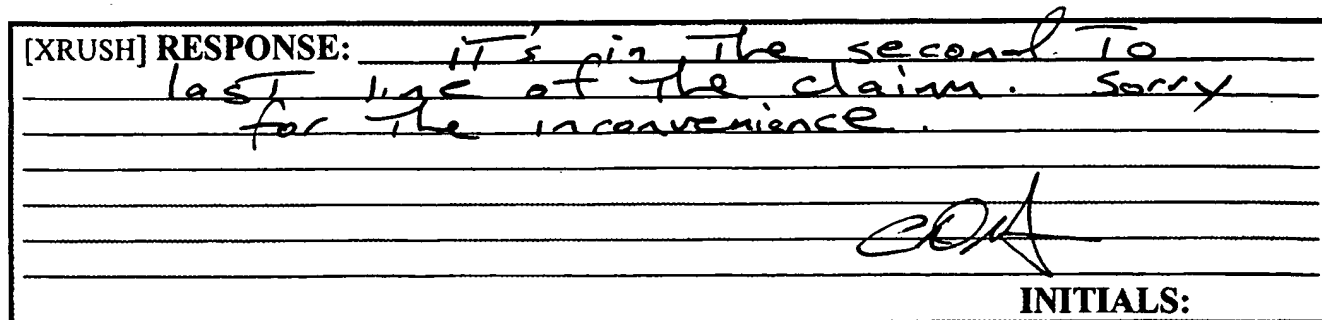 [XRUSH] RESPONSE: IT's in The second To
last line of The claim. Sorry
for The inconvenience.
INITIALS: